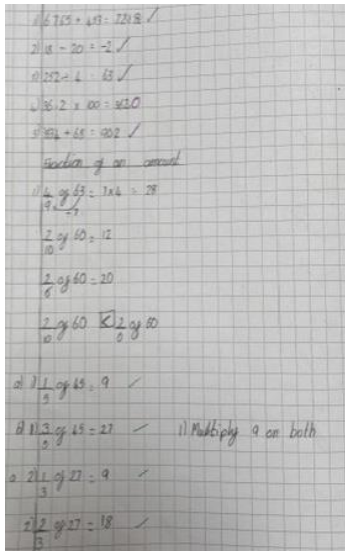 1) 6765 + 453 = 7218 ✓
2) 18 - 20 = -2 ✓
3) 252 ÷ 4 = 63 ✓
4) 36.2 x 100 = 3620
5) + 68 = 902 ✓
Fraction of an amount
1) 4/9 of 63 = 7x4 = 28
2/10 of 60 = 12
2/6 of 60 = 20
2/10 of 60 < 2/6 of 60
a) 1) 1/5 of 45 = 9 ✓
b) 1) 3/5 of 45 = 27 ✓ 1) Multiply 9 on both
2) 1/3 of 27 = 9 ✓
2) 2/3 of 27 = 18 ✓